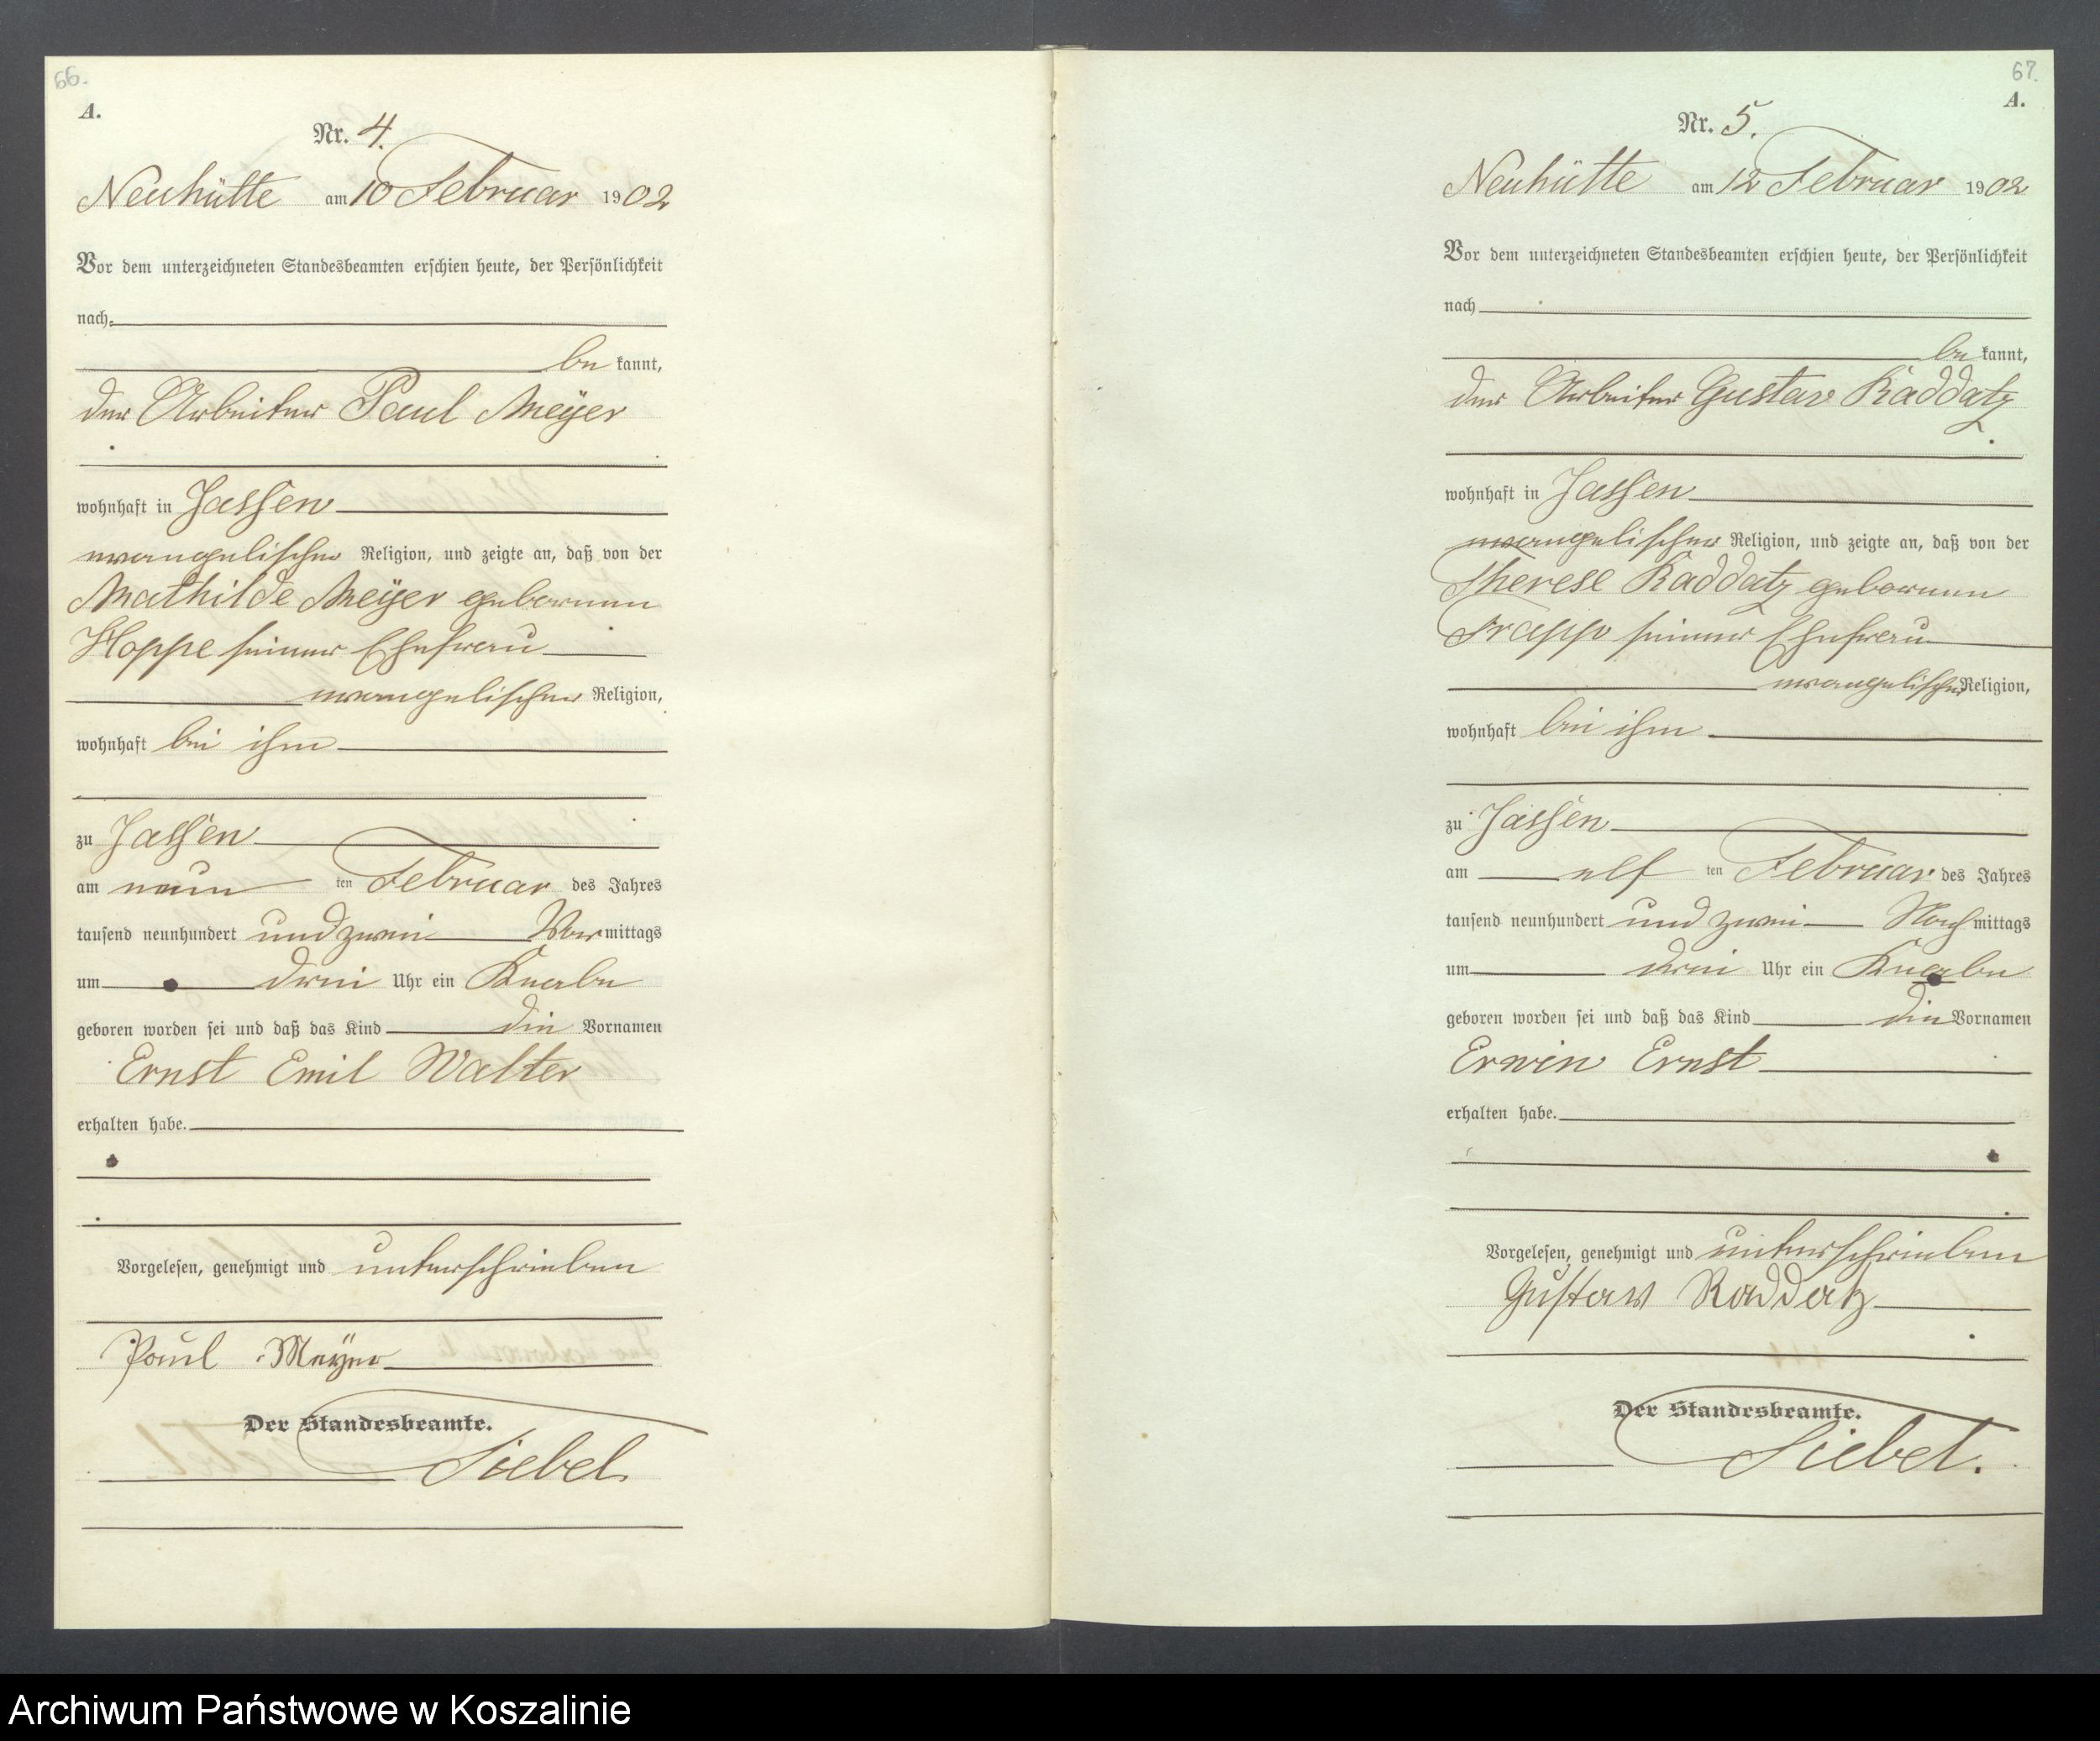 66.
A.
Nr. 4.
Neuhütte am 10 Februar 1902
Vor dem unterzeichneten Standesbeamten erschien heute, der Persönlichkeit
nach
be kannt,
der Arbeiter Paul Meÿer
wohnhaft in Jassen
evangelischer Religion, und zeigte an, daß von der
Mathilde Meÿer geborenen
Hoppe seiner Ehefrau
evangelischer Religion,
wohnhaft bei ihm
zu Jassen
am neun ten Februar des Jahres
tausend neunhundert und zwei Vor mittags
um drei Uhr ein Knabe
geboren worden sei und daß das Kind die Vornamen
Ernst Emil Walter
erhalten habe.
Vorgelesen, genehmigt und unterschrieben
Paul Meÿer
Der Standesbeamte.
Siebel.
67.
A.
Nr. 5.
Neuhütte am 12 Februar 1902
Vor dem unterzeichneten Standesbeamten erschien heute, der Persönlichkeit
nach
be kannt,
der Arbeiter Gustav Raddatz
wohnhaft in Jassen
evangelischer Religion, und zeigte an, daß von der
Therese Raddatz geborenen
Trapp seiner Ehefrau
evangelischer Religion,
wohnhaft bei ihm
zu Jassen
am elf ten Februar des Jahres
tausend neunhundert und zwei Nach mittags
um drei Uhr ein Knabe
geboren worden sei und daß das Kind die Vornamen
Erwin Ernst
erhalten habe.
Vorgelesen, genehmigt und unterschrieben
Gustav Raddatz
Der Standesbeamte.
Siebel.
Archiwum Państwowe w Koszalinie